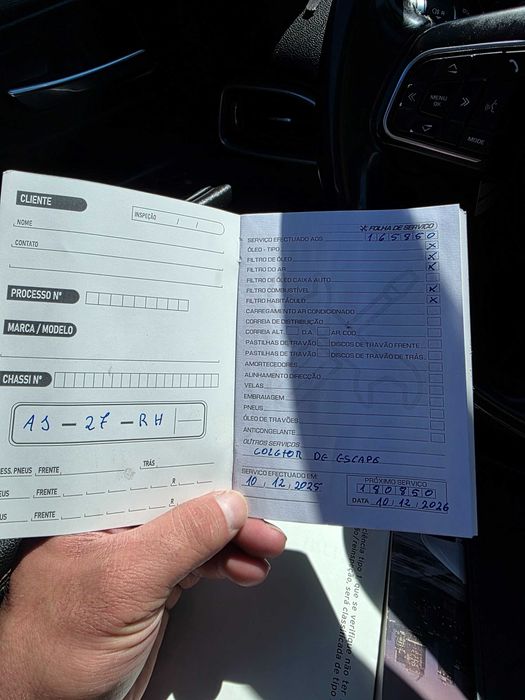 CLIENTE
INSPEÇÃO / /
NOME
CONTATO
PROCESSO Nº
MARCA / MODELO
CHASSI Nº
AS - 27 - RH
ESS. PNEUS FRENTE TRÁS
EUS FRENTE R
US FRENTE R
FOLHA DE SERVIÇO
SERVIÇO EFECTUADO AOS 165850
ÓLEO - TIPO X
FILTRO DE ÓLEO X
FILTRO DO AR X
FILTRO DE ÓLEO CAIXA AUTO
FILTRO COMBUSTÍVEL X
FILTRO HABITÁCULO X
CARREGAMENTO AR CONDICIONADO
CORREIA DE DISTRIBUIÇÃO
CORREIA ALT. D.A. AR COD.
PASTILHAS DE TRAVÃO DISCOS DE TRAVÃO FRENTE
PASTILHAS DE TRAVÃO DISCOS DE TRAVÃO DE TRÁS
AMORTECEDORES
ALINHAMENTO DIRECÇÃO
VELAS
EMBRAIAGEM
PNEUS
ÓLEO DE TRAVÕES
ANTICONGELANTE
OUTROS SERVIÇOS
COLETOR DE ESCAPE
SERVIÇO EFECTUADO EM:
10 / 12 / 2025
PRÓXIMO SERVIÇO
180850
DATA 10 / 12 / 2026
MENU
OK
MODE
ência tipo 1 que se verifique não ter
o/reinspeção, será classificada de tipo